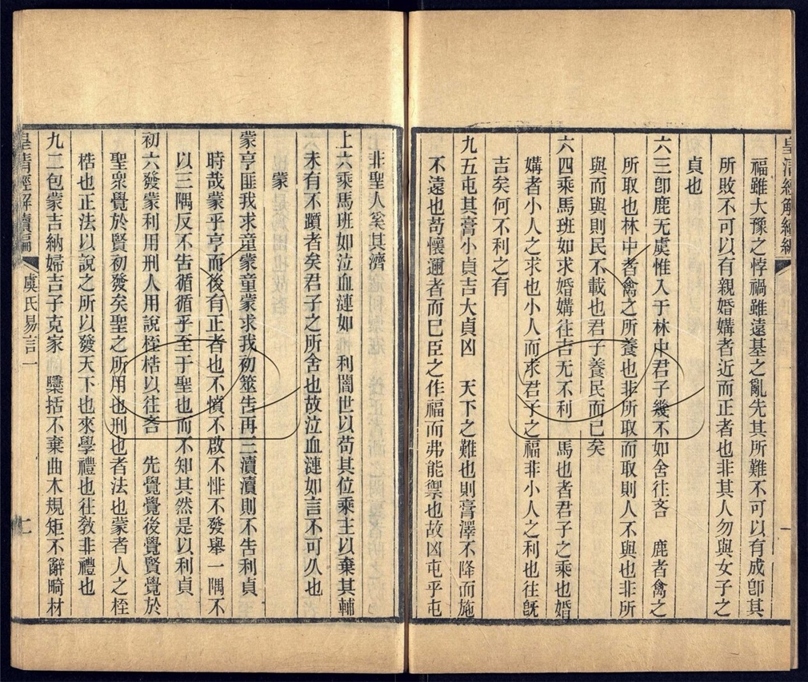 福雖大豫之悖禍雖遠基之亂先其所難不可以有成卽其
所敗不可以有親婚媾者近而正者也非其人勿與女子之
貞也
六三卽鹿无虞惟入于林中君子幾不如舍往吝　鹿者禽之
所取也林中者禽之所養也非所取而取則人不與也非所
與而與則民不載也君子養民而已矣
六四乘馬班如求婚媾往吉无不利　馬也者君子之乘也婚
媾者小人之求也小人而求君子之福非小人之利也往旣
吉矣何不利之有
九五屯其膏小貞吉大貞凶　天下之難也則膏澤不降而施
不遠也苟懷邇者而已臣之作福而弗能禦也故凶屯乎屯
非聖人奚其濟
上六乘馬班如泣血漣如　利闇世以苟其位乘主以棄其輔
未有不躓者矣君子之所舍也故泣血漣如言不可久也
蒙
蒙亨匪我求童蒙童蒙求我初筮吿再三瀆瀆則不吿利貞
時哉蒙乎亨而後有正者也不憤不啟不悱不發舉一隅不
以三隅反不吿循循乎至于聖也而不知其然是以利貞
初六發蒙利用刑人用說桎梏以往吝　先覺覺後覺賢覺於
聖衆覺於賢初發矣聖之所用也刑也者法也蒙者人之桎
梏也正法以說之所以發天下也來學禮也往敎非禮也
九二包蒙吉納婦吉子克家　檃括不棄曲木規矩不辭畸材
皇淸經解續編
虞氏易言一
二